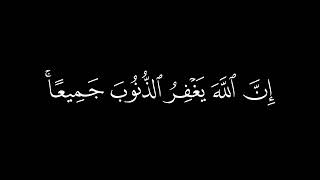 إِنَّ ٱللَّهَ يَغْفِرُ ٱلذُّنُوبَ جَمِيعًاۚ